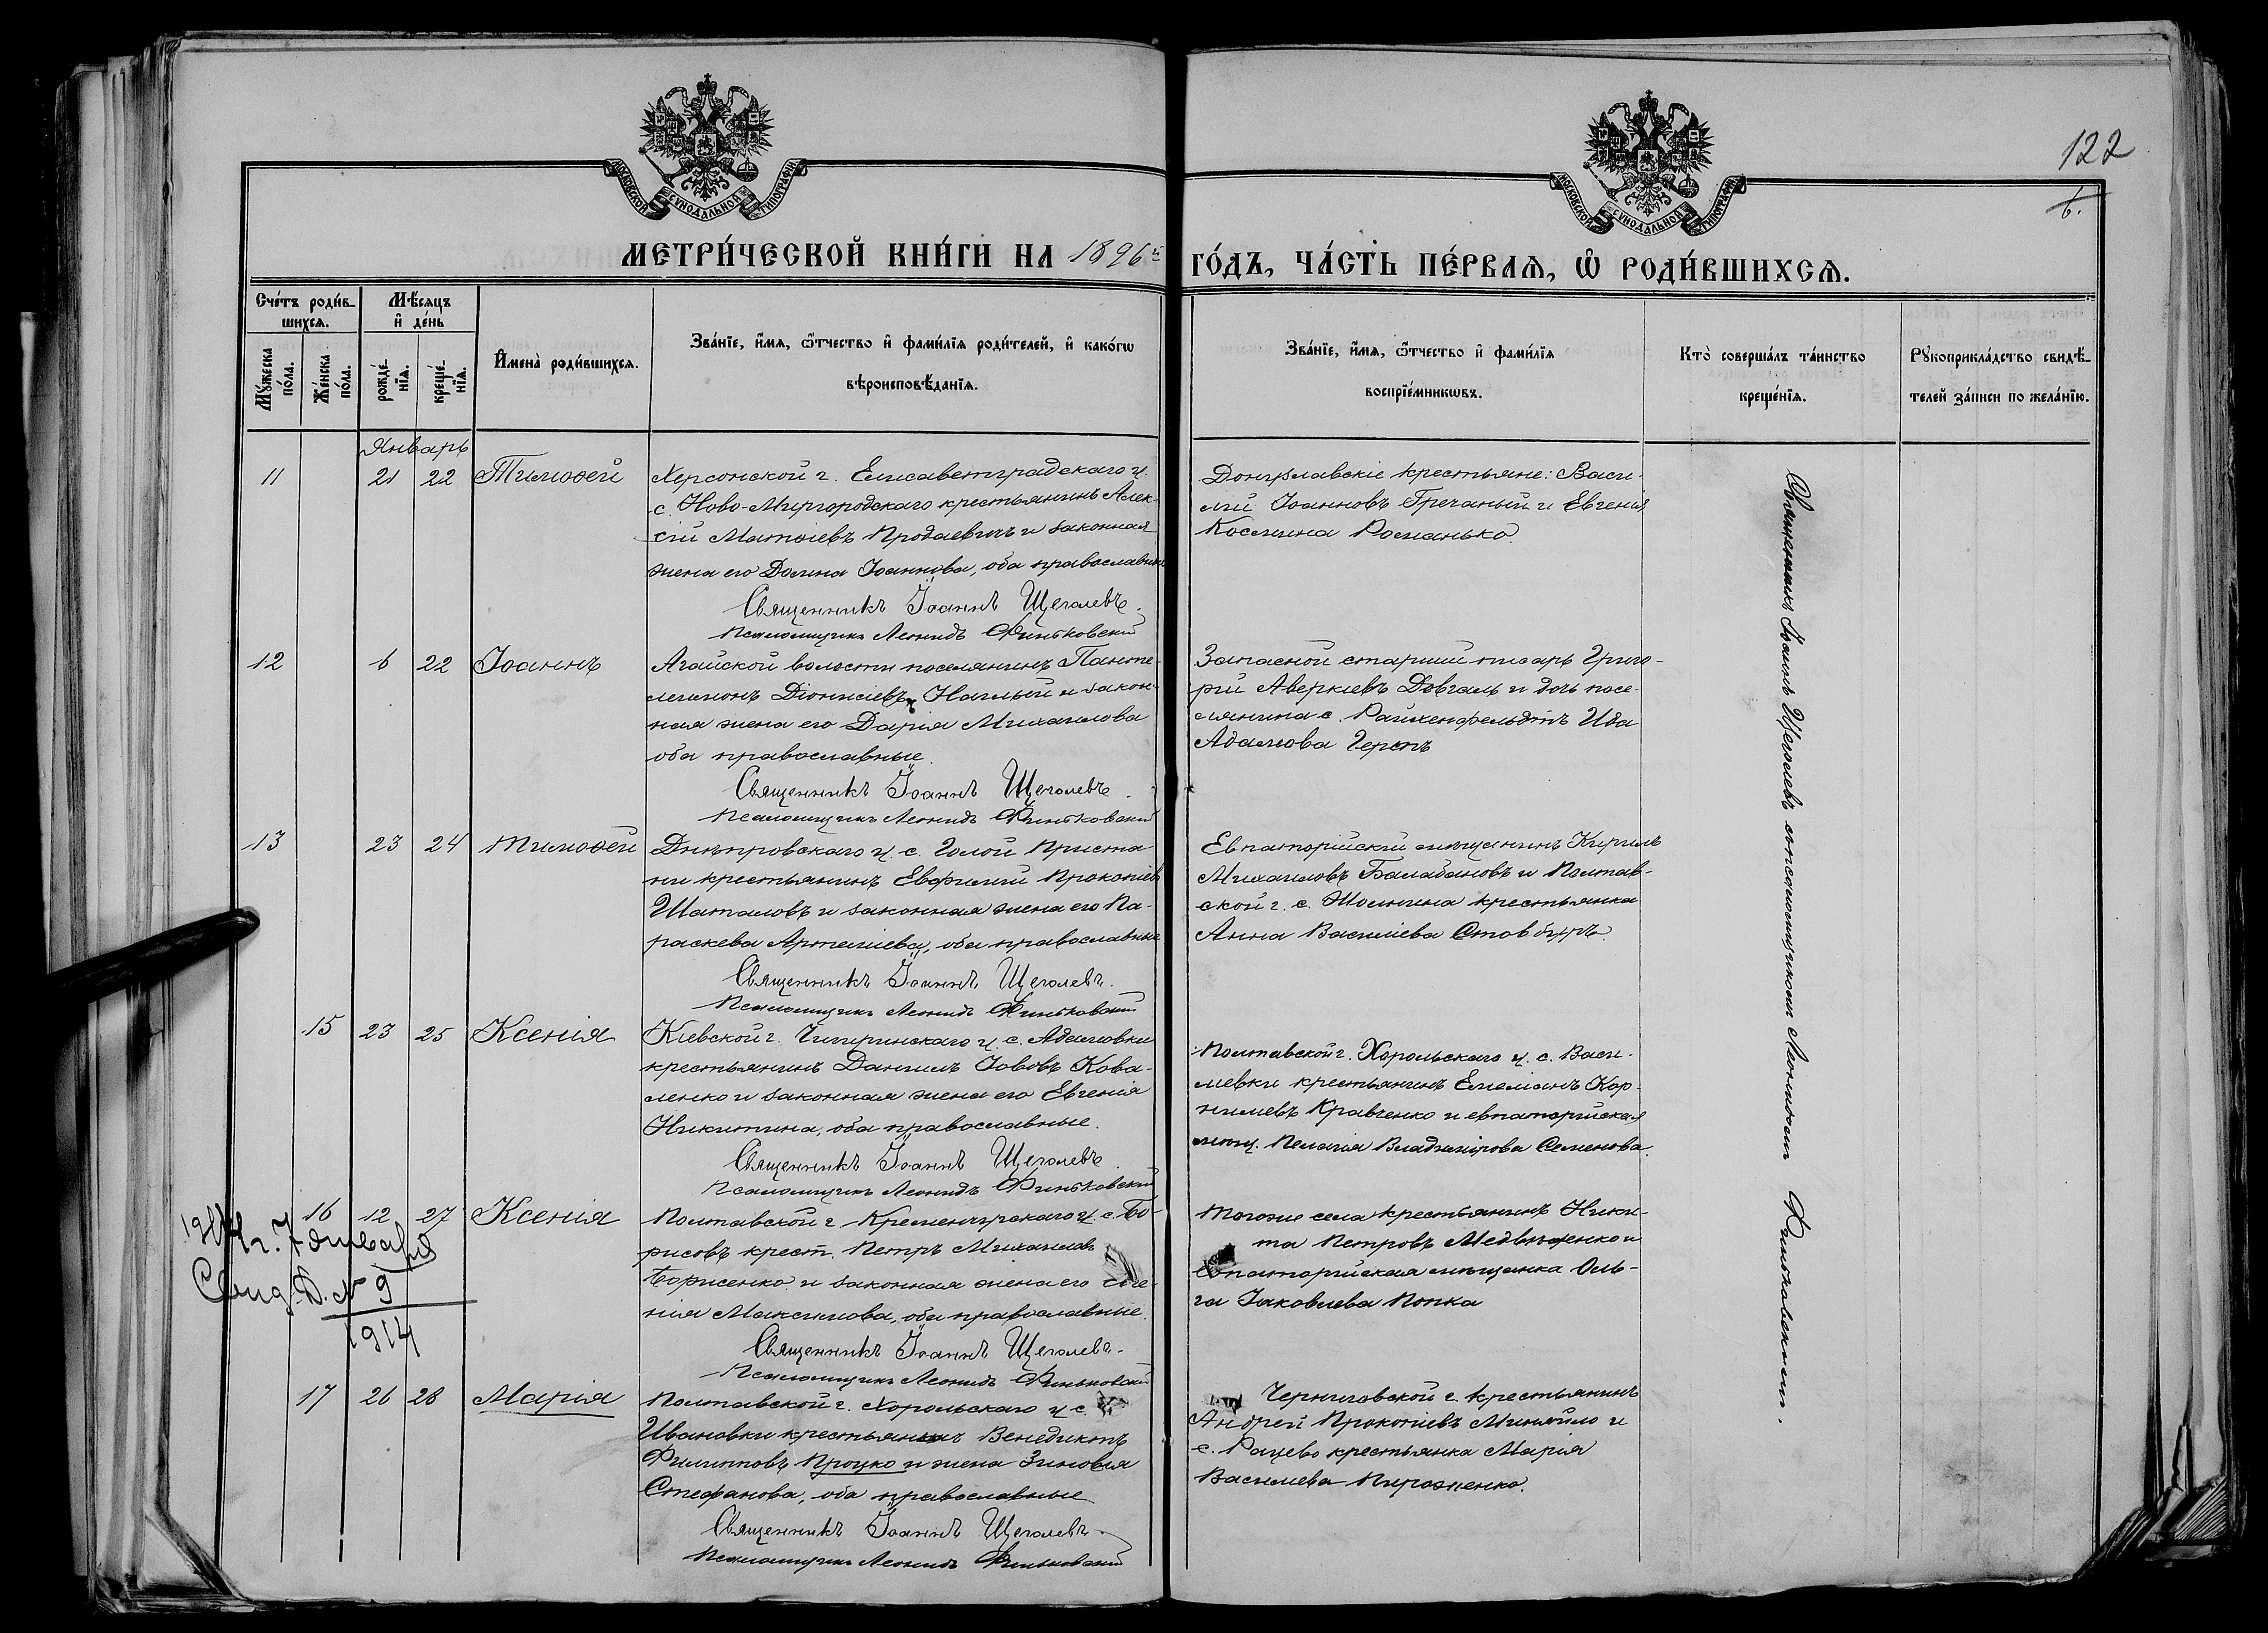 122
6.
МОСКОВСКОЙ СѴНОДАЛЬНОЙ ТИПОГРАФІИ
МОСКОВСКОЙ СѴНОДАЛЬНОЙ ТИПОГРАФІИ
МЕТРИ́ЧЕСКОЙ КНИ́ГИ НА 1896й ГО́ДЪ, ЧА́СТЬ ПЕ́РВАѦ, Ѡ РОДИ́ВШИХСѦ.
Сче́тъ роди́в-
шихсѧ.
Мꙋ́жеска по́ла.
Же́нска по́ла.
Мѣ́сѧцъ
и҆ де́нь
рожде́-
нїѧ.
креще́-
нїѧ.
И҆мена̀ роди́вшихсѧ.
Зва́нїе, и҆́мѧ, ѻ҆́тчество и҆ фами́лїѧ роди́телей, и҆ како́гѡ
вѣроисповѣ́данїѧ.
Зва́нїе, и҆́мѧ, ѻ҆́тчество и҆ фами́лїѧ
воспрїе́мникѡвъ.
Кто̀ соверша́лъ та́инство
креще́нїѧ.
Рꙋкоприкла́дство свидѣ́-
телей за́писи по жела́нїю.
Январь
11 21 22 Тимоѳей
Херсонской г. Елисаветградскаго у.
с. Ново-Миргородскаго крестьянинъ Алек-
сій Матѳіевъ Продаевичъ и законная
жена его Домна Іоаннова, оба православные
Священникъ Іоаннъ Щеголевъ.
Псаломщикъ Леонидъ Финьковскій
Донузлавскіе крестьяне: Васи-
лій Іоанновъ Гречаный и Евгенія
Космина Романько.
12 6 22 Іоаннъ
Агайской волости поселянинъ Панте-
леимонъ Діонисіевъ Наглый и закон-
ная жена его Дарія Михаилова
оба православные.
Священникъ Іоаннъ Щеголевъ.
Псаломщикъ Леонидъ Финьковскій
Запасной старшій писарь Григо-
рій Аверкіевъ Довгаль и дочь посе-
лянина с. Райхенфельдтъ Ида
Адамова Герстъ
13 23 24 Тимоѳей
Днѣпровскаго у. с. Голой Приста-
ни крестьянинъ Евфимій Прокопіевъ
Шаталовъ и законная жена его Па-
раскева Артеміева, оба православные
Священникъ Іоаннъ Щеголевъ.
Псаломщикъ Леонидъ Финьковскій
Евпаторійскій мѣщанинъ Кириллъ
Михаиловъ Балабановъ и Полтав-
ской г. с. Жолнина крестьянка
Анна Василіева Стовбуръ.
15 23 25 Ксенія
Кіевской г. Чигиринскаго у. с. Адамовки
крестьянинъ Даніилъ Іововъ Кова-
ленко и законная жена его Евгенія
Никитина, оба православные.
Священникъ Іоаннъ Щеголевъ.
Псаломщикъ Леонидъ Финьковскій
Полтавской г. Хорольскаго у. с. Васи-
левки крестьянинъ Емеліанъ Кор-
нилевъ Кравченко и евпаторійская
мѣщ. Пелагія Владимірова Семенова.
16 12 27 Ксенія
Полтавской г. Кременчугскаго у. с. Бо-
рисовъ крест. Петръ Михаиловъ
Борисенко и законная жена его Евге-
нія Максимова, оба православные.
Священникъ Іоаннъ Щеголевъ.
Псаломщикъ Леонидъ Финьковскій
Тогоже села крестьянинъ Ники-
та Петровъ Медвѣденко и
евпаторійская мѣщанка Оль-
га Іаковлева Попка
1914 г. 7 января
Свид. Д. № 9
1914
17 26 28 Марія
Полтавской г. Хорольскаго у. с.
Ивановки крестьянинъ Венедиктъ
Филипповъ Процко и жена Зиновія
Стефанова, оба православные
Священникъ Іоаннъ Щеголевъ.
Псаломщикъ Леонидъ Финьковскій
Черниговской г. крестьянинъ
Андрей Прокопіевъ Миняйло и
с. Рацево крестьянка Марія
Василиева Пироженко.
Священникъ Іоаннъ Щеголевъ съ псаломщикомъ Леонидомъ Финьковскимъ.